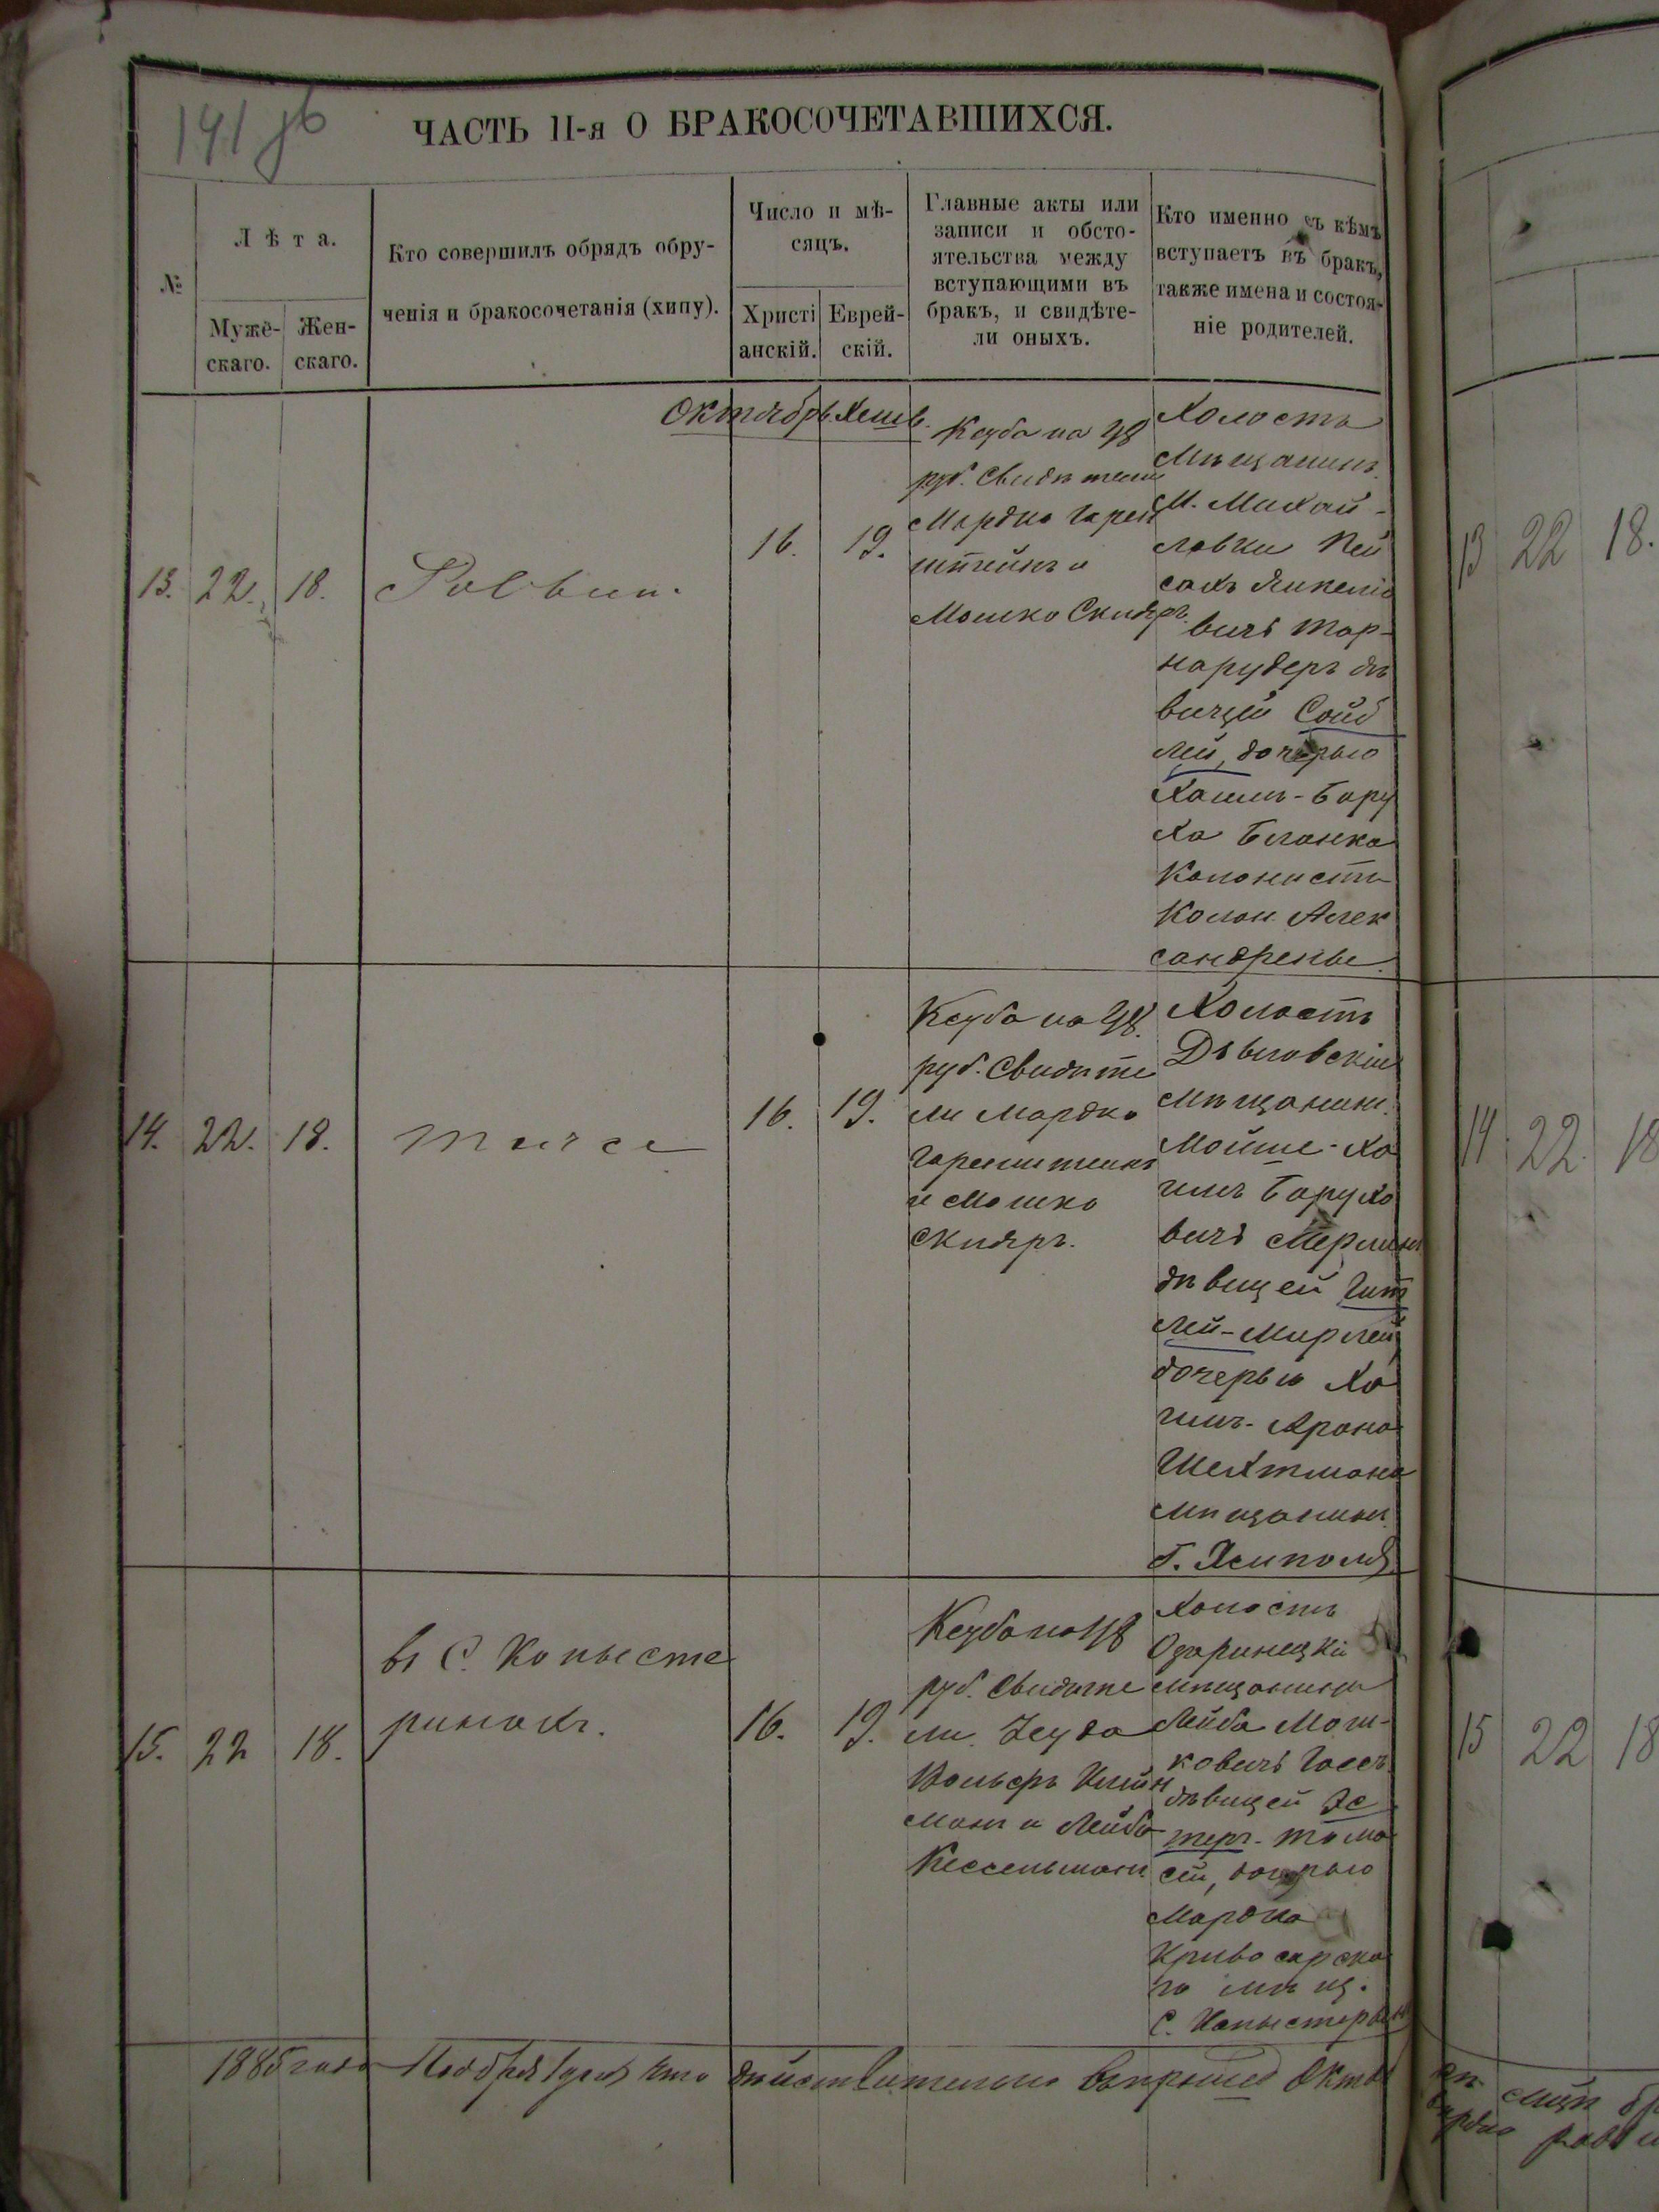 141 об
ЧАСТЬ II-я О БРАКОСОЧЕТАВШИХСЯ.
№
Лѣта.
Мужескаго.
Женскаго.
Кто совершилъ обрядъ обру-
ченія и бракосочетанія (хипу).
Число и мѣ-
сяцъ.
Христі
анскій.
Еврей-
скій.
Главные акты или
записи и обсто-
ятельства между
вступающими въ
бракъ, и свидѣте-
ли оныхъ.
Кто именно съ кѣмъ
вступаетъ въ бракъ,
также имена и состоя-
ніе родителей.
Октябрь. Хешв.
13. 22. 18.
Раввин.
16. 19.
Ксуба на 48
руб. Свидѣтели
Мордко Горен
штейнъ и
Мошко Скляръ.
Холостъ
Мѣщанинъ
М. Михай-
ловки Пей
сахъ Янкеліо
вичъ Тар-
нарудеръ дѣ
вицей Сой
лей, дочерью
Хаимъ-Бару
ха Бланка
Колонистъ
Колон. Алек
сандрены
14. 22. 18.
тоже
16. 19.
Ксуба на 48.
руб. Свидѣте
ли Мордко
Горенштейнъ
и Мошко
Скляръ.
Холостъ
мѣщанинъ
Мойше-Ха
имъ Барухо
вичъ
дѣвицей Гит
лей-Мирлей,
дочерью Ха
имъ-Арона
Шехтмана
мѣщанинъ
г. Ямполя
15. 22 18.
въ С. Копысте
ринахъ.
16. 19.
Ксуба на 48
руб. Свидѣте
ли
Вольфъ
и Лейба
Кессельманъ
Холостъ
Озаринецкій
мѣщанинъ
Лейба Мош-
ковичъ
дѣвицей Эс
теръ-
сей, дочерью
Мордка
го мѣщ.
С. Копыстерин
1885 года Ноября 1 дня что дѣйствительно въ прошл Октя
13 22 18.
14 22 18
15 22 18